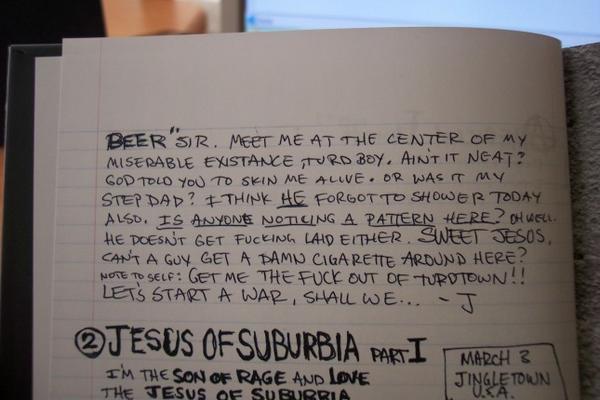 BEER" SIR. MEET ME AT THE CENTER OF MY
MISERABLE EXISTANCE, TURD BOY. AIN'T IT NEAT?
GOD TOLD YOU TO SKIN ME ALIVE. OR WAS IT MY
STEP DAD? I THINK HE FORGOT TO SHOWER TODAY
ALSO. IS ANYONE NOTICING A PATTERN HERE? OH WELL.
HE DOESN'T GET FUCKING LAID EITHER. SWEET JESOS,
CAN'T A GUY GET A DAMN CIGARETTE AROUND HERE?
NOTE TO SELF: GET ME THE FUCK OUT OF TURDTOWN!!
LET'S START A WAR, SHALL WE... - J
② JESUS OF SUBURBIA PART I
I'M THE SON OF RAGE AND LOVE
THE JESUS OF SUBURBIA
MARCH 3
JINGLETOWN
U.S.A.